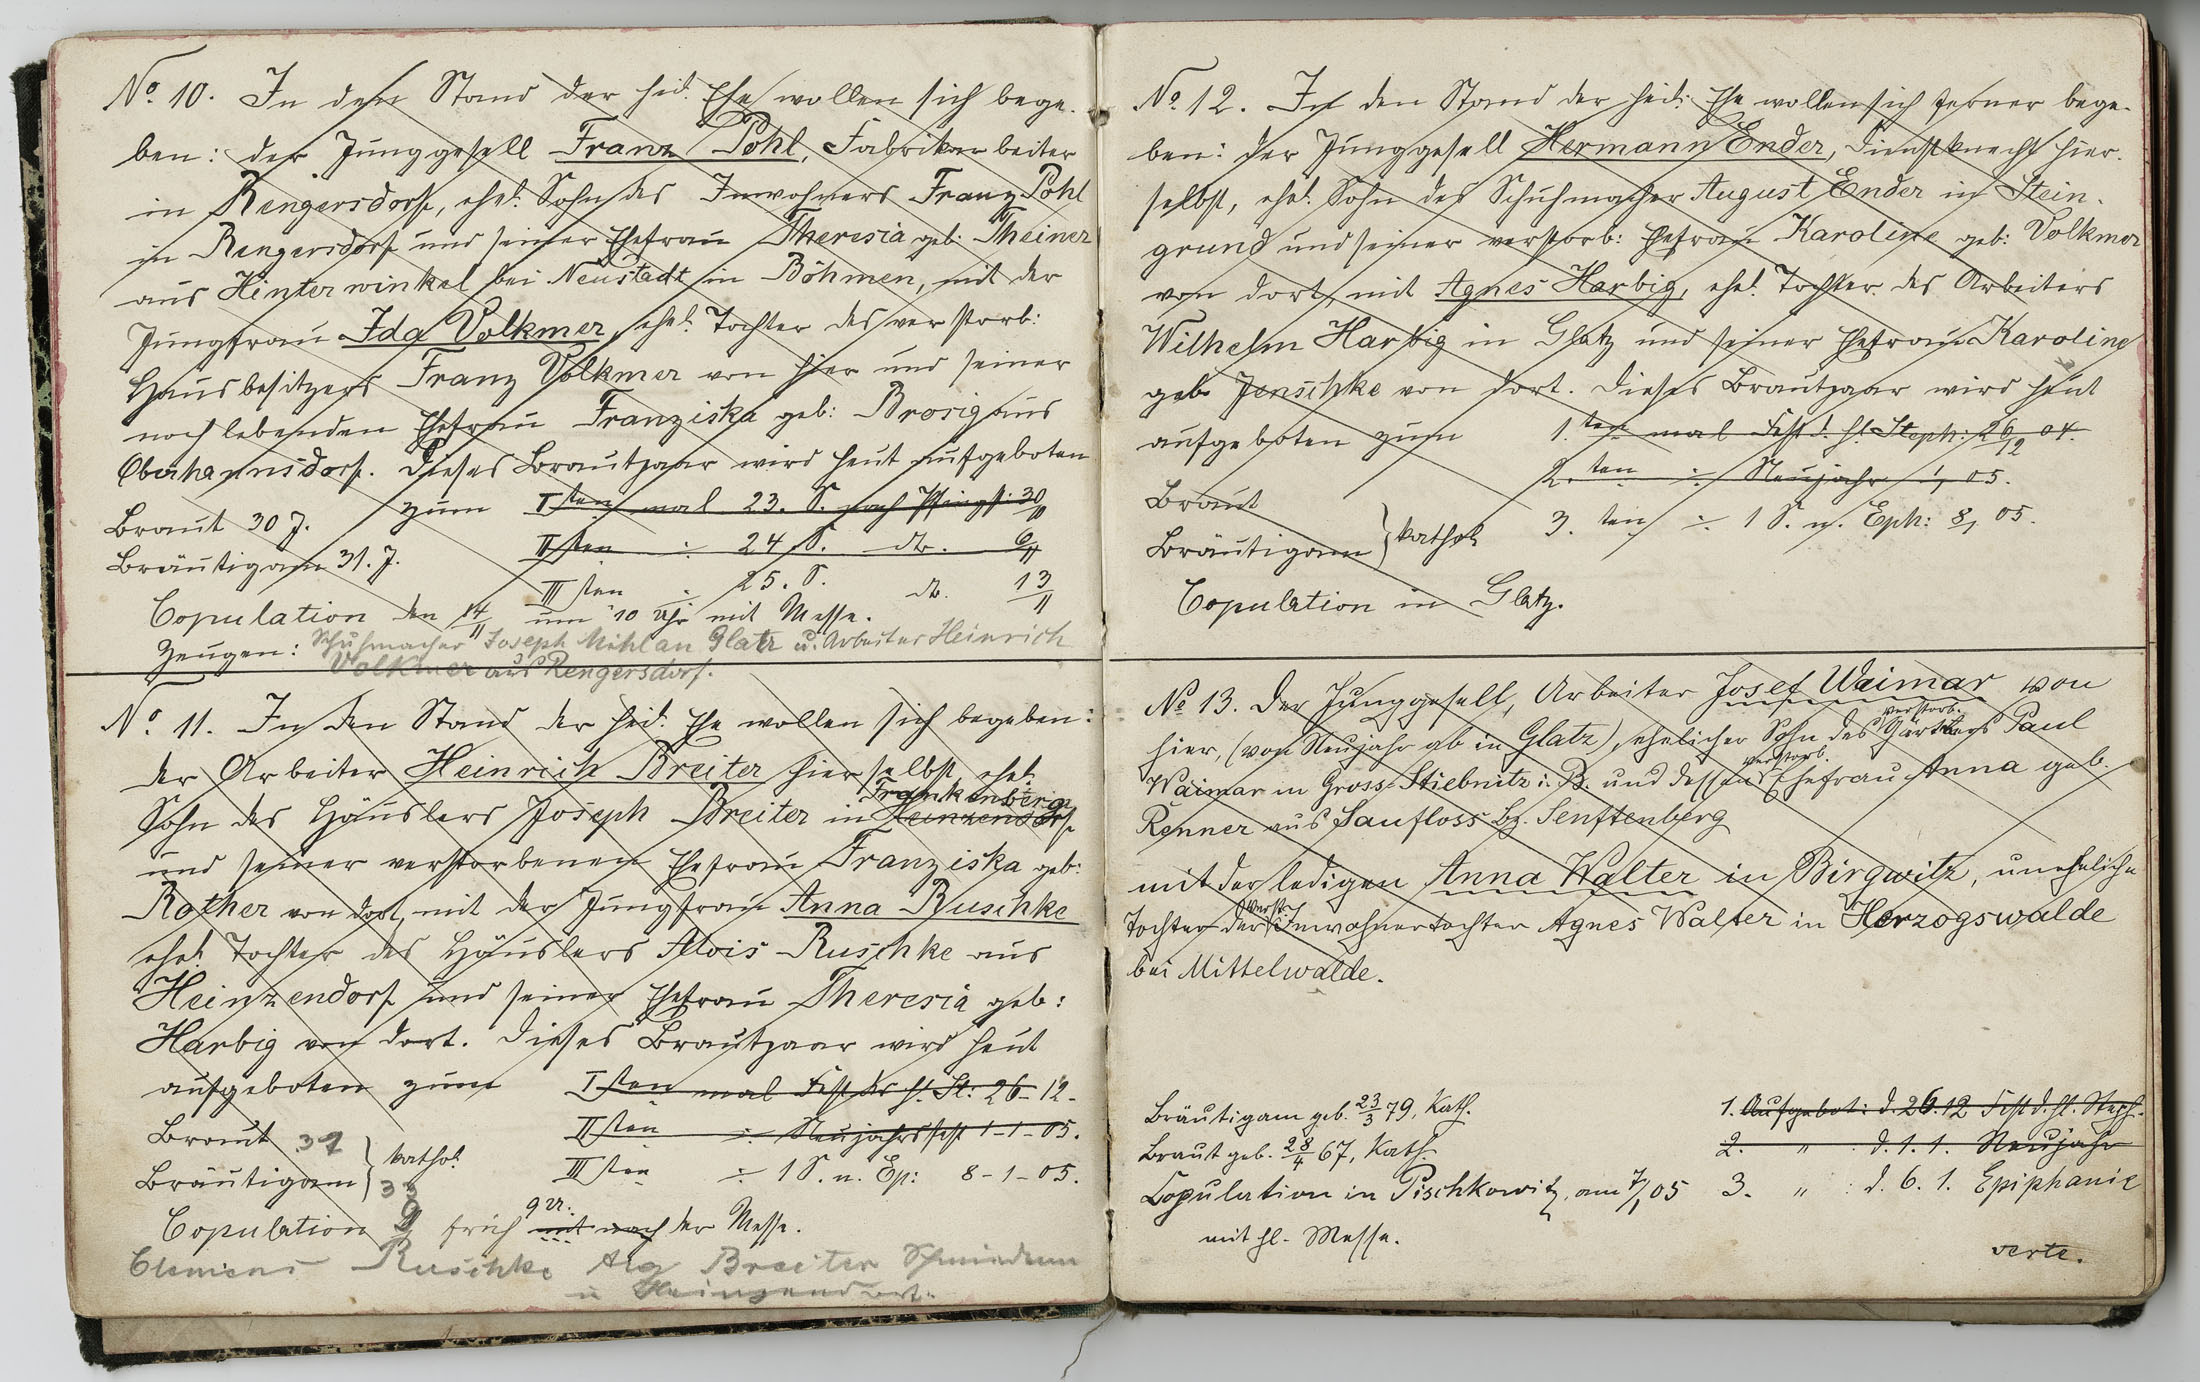 No. 10. In den Stand der heil. Ehe wollen sich bege-
ben: der Junggesell Franz Pohl, Fabrikarbeiter
in Rengersdorf, ehel. Sohn des Inwohners Franz Pohl
in Rengersdorf und seiner Ehefrau Theresia geb: Theiner
aus Hinterwinkel bei Neustadt in Böhmen, mit der
Jungfrau Ida Volkmer, ehel. Tochter des verstorb:
Hausbesitzers Franz Volkmer von hier und seiner
noch lebenden Ehefrau Franziska geb: Brosig aus
Oberhannsdorf. Dieses Brautpaar wird heut aufgeboten
zum Isten mal 23. S. nach Pfingst: 30/10
Braut 30 J.
IIten : 24 S. do. 6/11
Bräutigam 31. J.
IIIten : 25. S. do. 13/11
Copulation den 14/11 um 10 Uhr mit Messe.
Zeugen: Schuhmacher Joseph Mihlan Glatz u. Arbeiter Heinrich
Volkmer aus Rengersdorf.
No. 11. In den Stand der heil. Ehe wollen sich begeben:
der Arbeiter Heinrich Breiter hierselbst, ehel.
Frankenberg
Sohn des Häuslers Joseph Breiter in Heinzendorf
und seiner verstorbenen Ehefrau Franziska geb:
Rother von dort, mit der Jungfrau Anna Ruschke
ehel. Tochter des Häuslers Alois Ruschke aus
Heinzendorf und seiner Ehefrau Theresia geb:
Harbig von dort. Dieses Brautpaar wird heut
aufgeboten zum Isten mal Fest des hl. St: 26-12-
Braut
IIten : Neujahrsfest 1-1-05.
Bräutigam 33 } kathol.
IIIten : 1 S. n. Ep: 8-1-05.
9 Ur.
Copulation 9 früh mit nach der Messe.
Clemens Ruschke Aug Breiter
u Heinzendorf.
No. 12. In den Stand der heil: Ehe wollen sich ferner bege-
ben: der Junggesell Hermann Ender, Dienstknecht hier-
selbst, ehel. Sohn des Schuhmacher August Ender in Stein-
grund und seiner verstorb: Ehefrau Karoline geb: Volkmer
von dort, mit Agnes Harbig, ehel. Tochter des Arbeiters
Wilhelm Harbig in Glatz und seiner Ehefrau Karoline
geb. Jenschke von dort. Dieses Brautpaar wird heut
aufgeboten zum 1.ten mal Fest d. hl. Steph: 26/12 04.
2.ten : Neujahr 1/1 05.
Braut
Bräutigam } kathol.
3.ten : 1 S. n. Eph: 8/1 05.
Copulation in Glatz.
No 13. Der Junggesell, Arbeiter Josef Waimar von
verstorb.
hier, (von Neujahr ab in Glatz), ehelicher Sohn des Gärtners Paul
verstorb.
Waimar in Gross-Stiebnitz i. B. und dessen Ehefrau Anna geb.
Renner aus Saufloss Bz. Senftenberg
mit der ledigen Anna Walter in Birgwitz, uneheliche
verst.
Tochter der Inwohnertochter Agnes Walter in Herzogswalde
bei Mittelwalde.
Bräutigam geb. 23/3 79, Kath.
1. Aufgebot: d. 26.12 Fest d. hl. Steph.
Braut geb. 28/4 67, Kath.
2. " : d. 1. 1. Neujahr
Copulation in Pischkowitz, am 7/1 05
3. " : d. 6. 1. Epiphanie
mit hl. Messe.
verte.